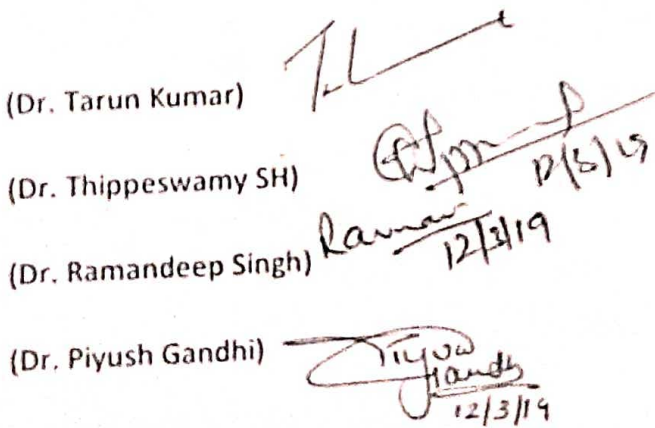 (Dr. Tarun Kumar)
(Dr. Thippeswamy SH)
12/3/19
(Dr. Ramandeep Singh) Raman
12/3/19
(Dr. Piyush Gandhi) Piyush
Gandhi
12/3/19